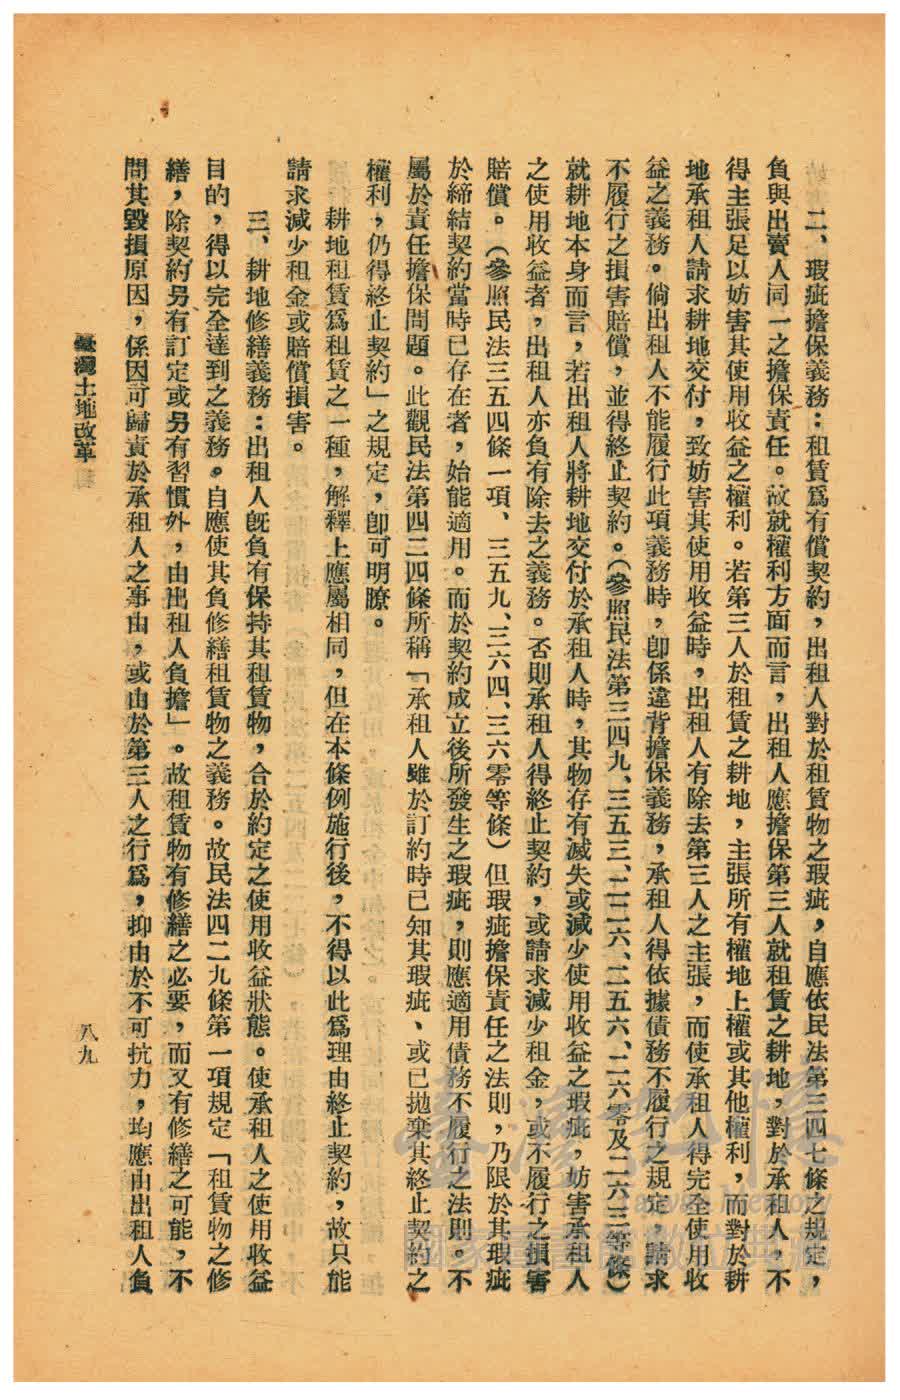 二、瑕疵擔保義務：租賃爲有償契約，出租人對於租賃物之瑕疵，自應依民法第三四七條之規定，
負與出賣人同一之擔保責任。故就權利方面而言，出租人應擔保第三人就租賃之耕地，對於承租人，不
得主張足以妨害其使用收益之權利。若第三人於租賃之耕地，主張所有權地上權或其他權利，而對於耕
地承租人請求耕地交付，致妨害其使用收益時，出租人有除去第三人之主張，而使承租人得完全使用收
益之義務。倘出租人不能履行此項義務時，卽係違背擔保義務，承租人得依據債務不履行之規定，請求
不履行之損害賠償，並得終止契約。（參照民法第三四九、三五三、二二六、二五六、二六零及二六三等條）
就耕地本身而言，若出租人將耕地交付於承租人時，其物存有滅失或減少使用收益之瑕疵，妨害承租人
之使用收益者，出租人亦負有除去之義務。否則承租人得終止契約，或請求減少租金，或不履行之損害
賠償。（參照民法三五四條一項、三五九、三六四、三六零等條）但瑕疵擔保責任之法則，乃限於其瑕疵
於締結契約當時已存在者，始能適用。而於契約成立後所發生之瑕疵，則應適用債務不履行之法則。不
屬於責任擔保問題。此觀民法第四二四條所稱「承租人雖於訂約時已知其瑕疵、或已拋棄其終止契約之
權利，仍得終止契約」之規定，卽可明瞭。
耕地租賃爲租賃之一種，解釋上應屬相同，但在本條例施行後，不得以此爲理由終止契約，故只能
請求減少租金或賠償損害。
三、耕地修繕義務：出租人旣負有保持其租賃物，合於約定之使用收益狀態。使承租人之使用收益
目的，得以完全達到之義務。自應使其負修繕租賃物之義務。故民法四二九條第一項規定「租賃物之修
繕，除契約另有訂定或另有習慣外，由出租人負擔」。故租賃物有修繕之必要，而又有修繕之可能，不
問其毀損原因，係因可歸責於承租人之事由，或由於第三人之行爲，抑由於不可抗力，均應由出租人負
臺灣土地改革
八九
國家